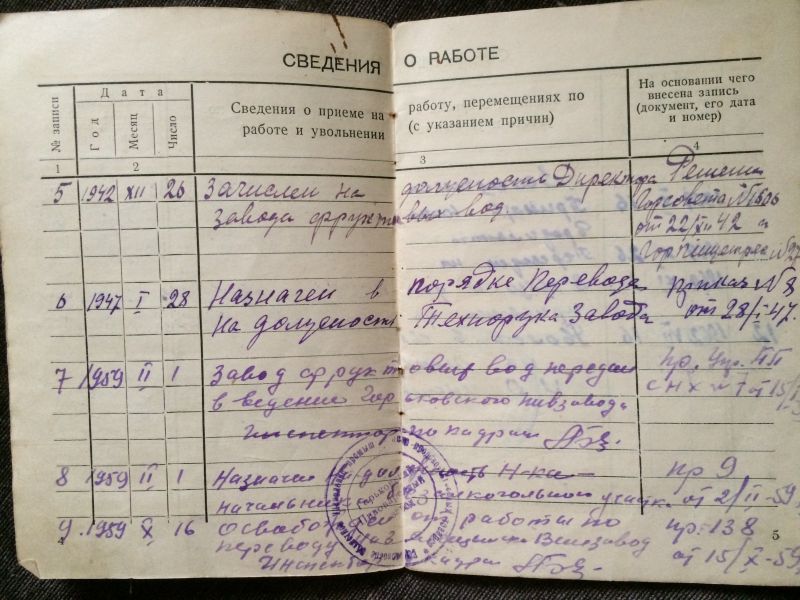 СВЕДЕНИЯ О РАБОТЕ
№ записи
Дата
Год
Месяц
Число
Сведения о приеме на работу, перемещениях по
работе и увольнении (с указанием причин)
На основании чего
внесена запись
(документ, его дата
и номер)
1 2 3 4
5 1942 XII 26 Зачислен на должность Директора Решение
завода фруктовых вод Горсовета №
от 22/XII 42 г
6 1947 I 28 Назначен в порядке Перевода приказ №8
на должность Технорука Завода от 28/I-47.
7 1959 II 1 Завод фруктовых вод передан пр. Упр. ПП
в ведение Горьковского пивзавода СНХ № 7 от 15/I
Инспектор по кадрам
8 1959 II 1 Назначен на должность Н-ка пр 9
начальника алкогольного участка от 2/II-59
9 1959 X 16 Освобожден от работы по пр. 138
переводу на Винзавод от 15/X-59
Инспектор кадров
4 5